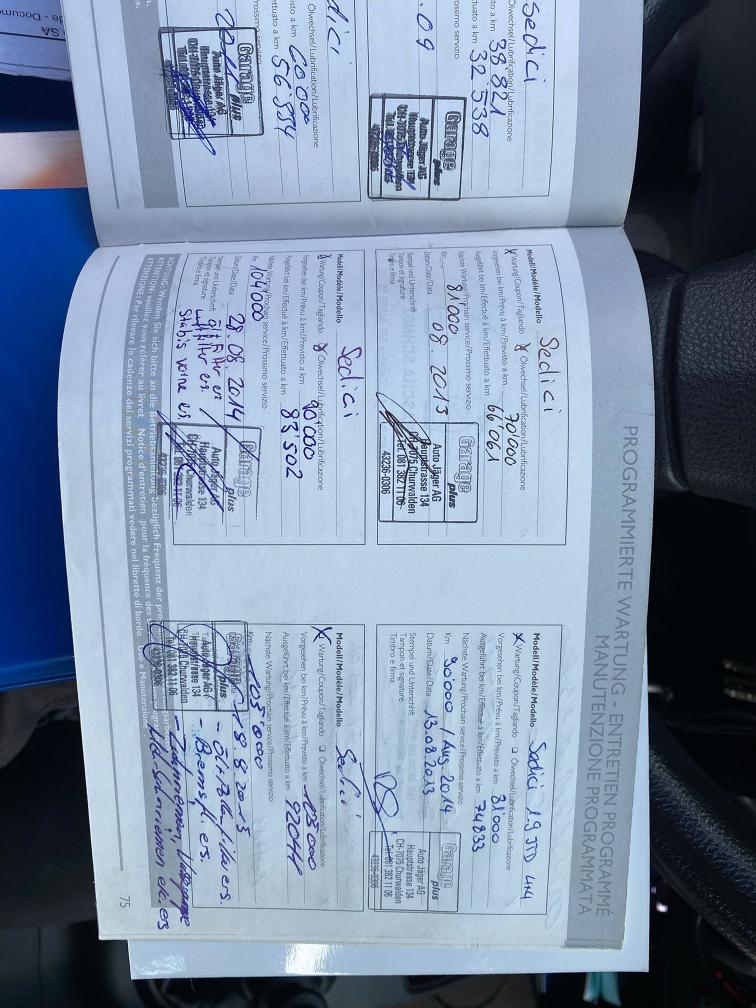 PROGRAMMIERTE WARTUNG - ENTRETIEN PROGRAMMÉ
MANUTENZIONE PROGRAMMATA
sedici
38 821
Ölwechsel/Lubrification/Lubrificazione
32 538
Prossimo servizio
.09
Garage
plus
Auto Jäger AG
Hauptstrasse 134
CH-7075 Churwalden
43236-0306
dici
Ölwechsel/Lubrification/Lubrificazione
60'000
56 994
Prossimo servizio
2011
Garage
plus
Auto Jäger AG
Hauptstrasse
Modell/Modèle/Modello Sedici
X Wartung/Coupon/Tagliando X Ölwechsel/Lubrification/Lubrificazione
Vorgesehen bei km/Prévu à km/Previsto a km 70'000
Ausgeführt bei km/Effectué à km/Effettuato a km 66'061
Nächste Wartung/Prochain service/Prossimo servizio
Km 81000
Datum/Date/Data 08. 2013
Stempel und Unterschrift
Tampon et signature
Timbro e firma
Garage
plus
Auto Jäger AG
Hauptstrasse 134
CH-7075 Churwalden
Tel. 081 382 11 06
43236-0306
Modell/Modèle/Modello Sedici
X Wartung/Coupon/Tagliando X Ölwechsel/Lubrification/Lubrificazione
Vorgesehen bei km/Prévu à km/Previsto a km 90'000
Ausgeführt bei km/Effectué à km/Effettuato a km 83'502
Nächste Wartung/Prochain service/Prossimo servizio
Km 104'000
Datum/Date/Data 28. 08. 2014
Stempel und Unterschrift
Tampon et signature
Timbro e firma
Stabis vorne ers.
Garage
plus
Auto Jäger AG
Hauptstrasse 134
CH-7075 Churwalden
Tel. 081 382 11 06
43236-0306
Modell/Modèle/Modello Sedici 1.9 JTD 4x4
X Wartung/Coupon/Tagliando ❑ Ölwechsel/Lubrification/Lubrificazione
Vorgesehen bei km/Prévu à km/Previsto a km 81'000
Ausgeführt bei km/Effectué à km/Effettuato a km 74'833
Nächste Wartung/Prochain service/Prossimo servizio
Km 90'000 / Aug 2014
Datum/Date/Data 13.08.2013
Stempel und Unterschrift
Tampon et signature
Timbro e firma
Garage
plus
Auto Jäger AG
Hauptstrasse 134
CH-7075 Churwalden
Tel. 081 382 11 06
43236-0306
Modell/Modèle/Modello Sedici
X Wartung/Coupon/Tagliando ❑ Ölwechsel/Lubrification/Lubrificazione
Vorgesehen bei km/Prévu à km/Previsto a km 105'000
Ausgeführt bei km/Effectué à km/Effettuato a km 92044
Nächste Wartung/Prochain service/Prossimo servizio
Km 105'000
18.8.2015
- Bremsfl. ers.
- Zahnriemen,
Keilriemen etc. ers
Garage
plus
Auto Jäger AG
Hauptstrasse 134
CH-7075 Churwalden
Tel. 081 382 11 06
43236-0306
ACHTUNG: Wenden Sie sich bitte an die Betriebsanleitung bezüglich Frequenz der
ATTENTION: veuillez vous référer au livret Notice d'entretien pour la fréquence des
ATTENZIONE: Per rilevare le cadenze dei servizi programmati vedere nel libretto di bordo Uso e Manutenzione
75